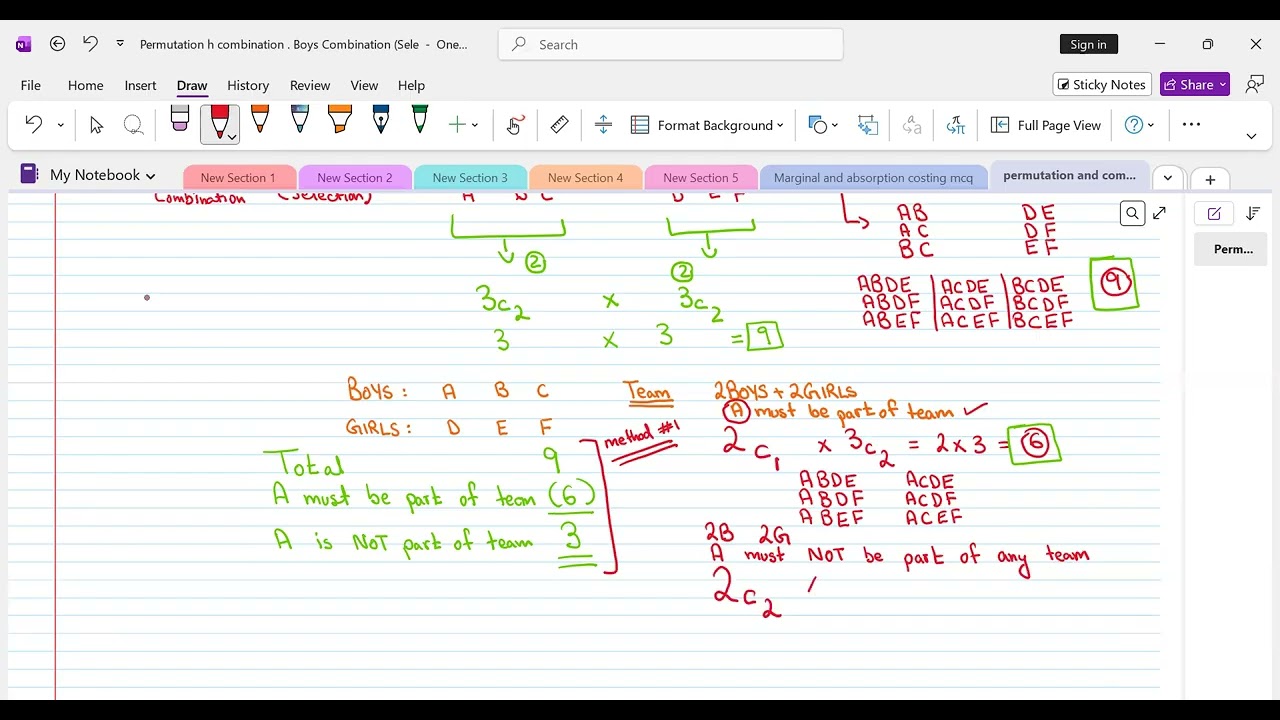 Permutation h combination . Boys Combination (Sele - One...
Search
Sign in
File Home Insert Draw History Review View Help
Sticky Notes
Share
Format Background
Full Page View
My Notebook
New Section 1
New Section 2
New Section 3
New Section 4
New Section 5
Marginal and absorption costing mcq
permutation and com...
Perm...
Combination (Selection) A B C D E F
② ②
3c2 x 3c2
3 x 3 = 9
AB DE
AC DF
BC EF
ABDE | ACDE | BCDE
ABDF | ACDF | BCDF
ABEF | ACEF | BCEF
9
BOYS : A B C
GIRLS : D E F
Team 2BOYS + 2GIRLS
A must be part of team ✓
2c1 x 3c2 = 2 x 3 = 6
ABDE ACDE
ABDF ACDF
ABEF ACEF
Total 9
A must be part of team (6)
A is NOT part of team 3
method #1
2B 2G
A must NOT be part of any team
2c2 /